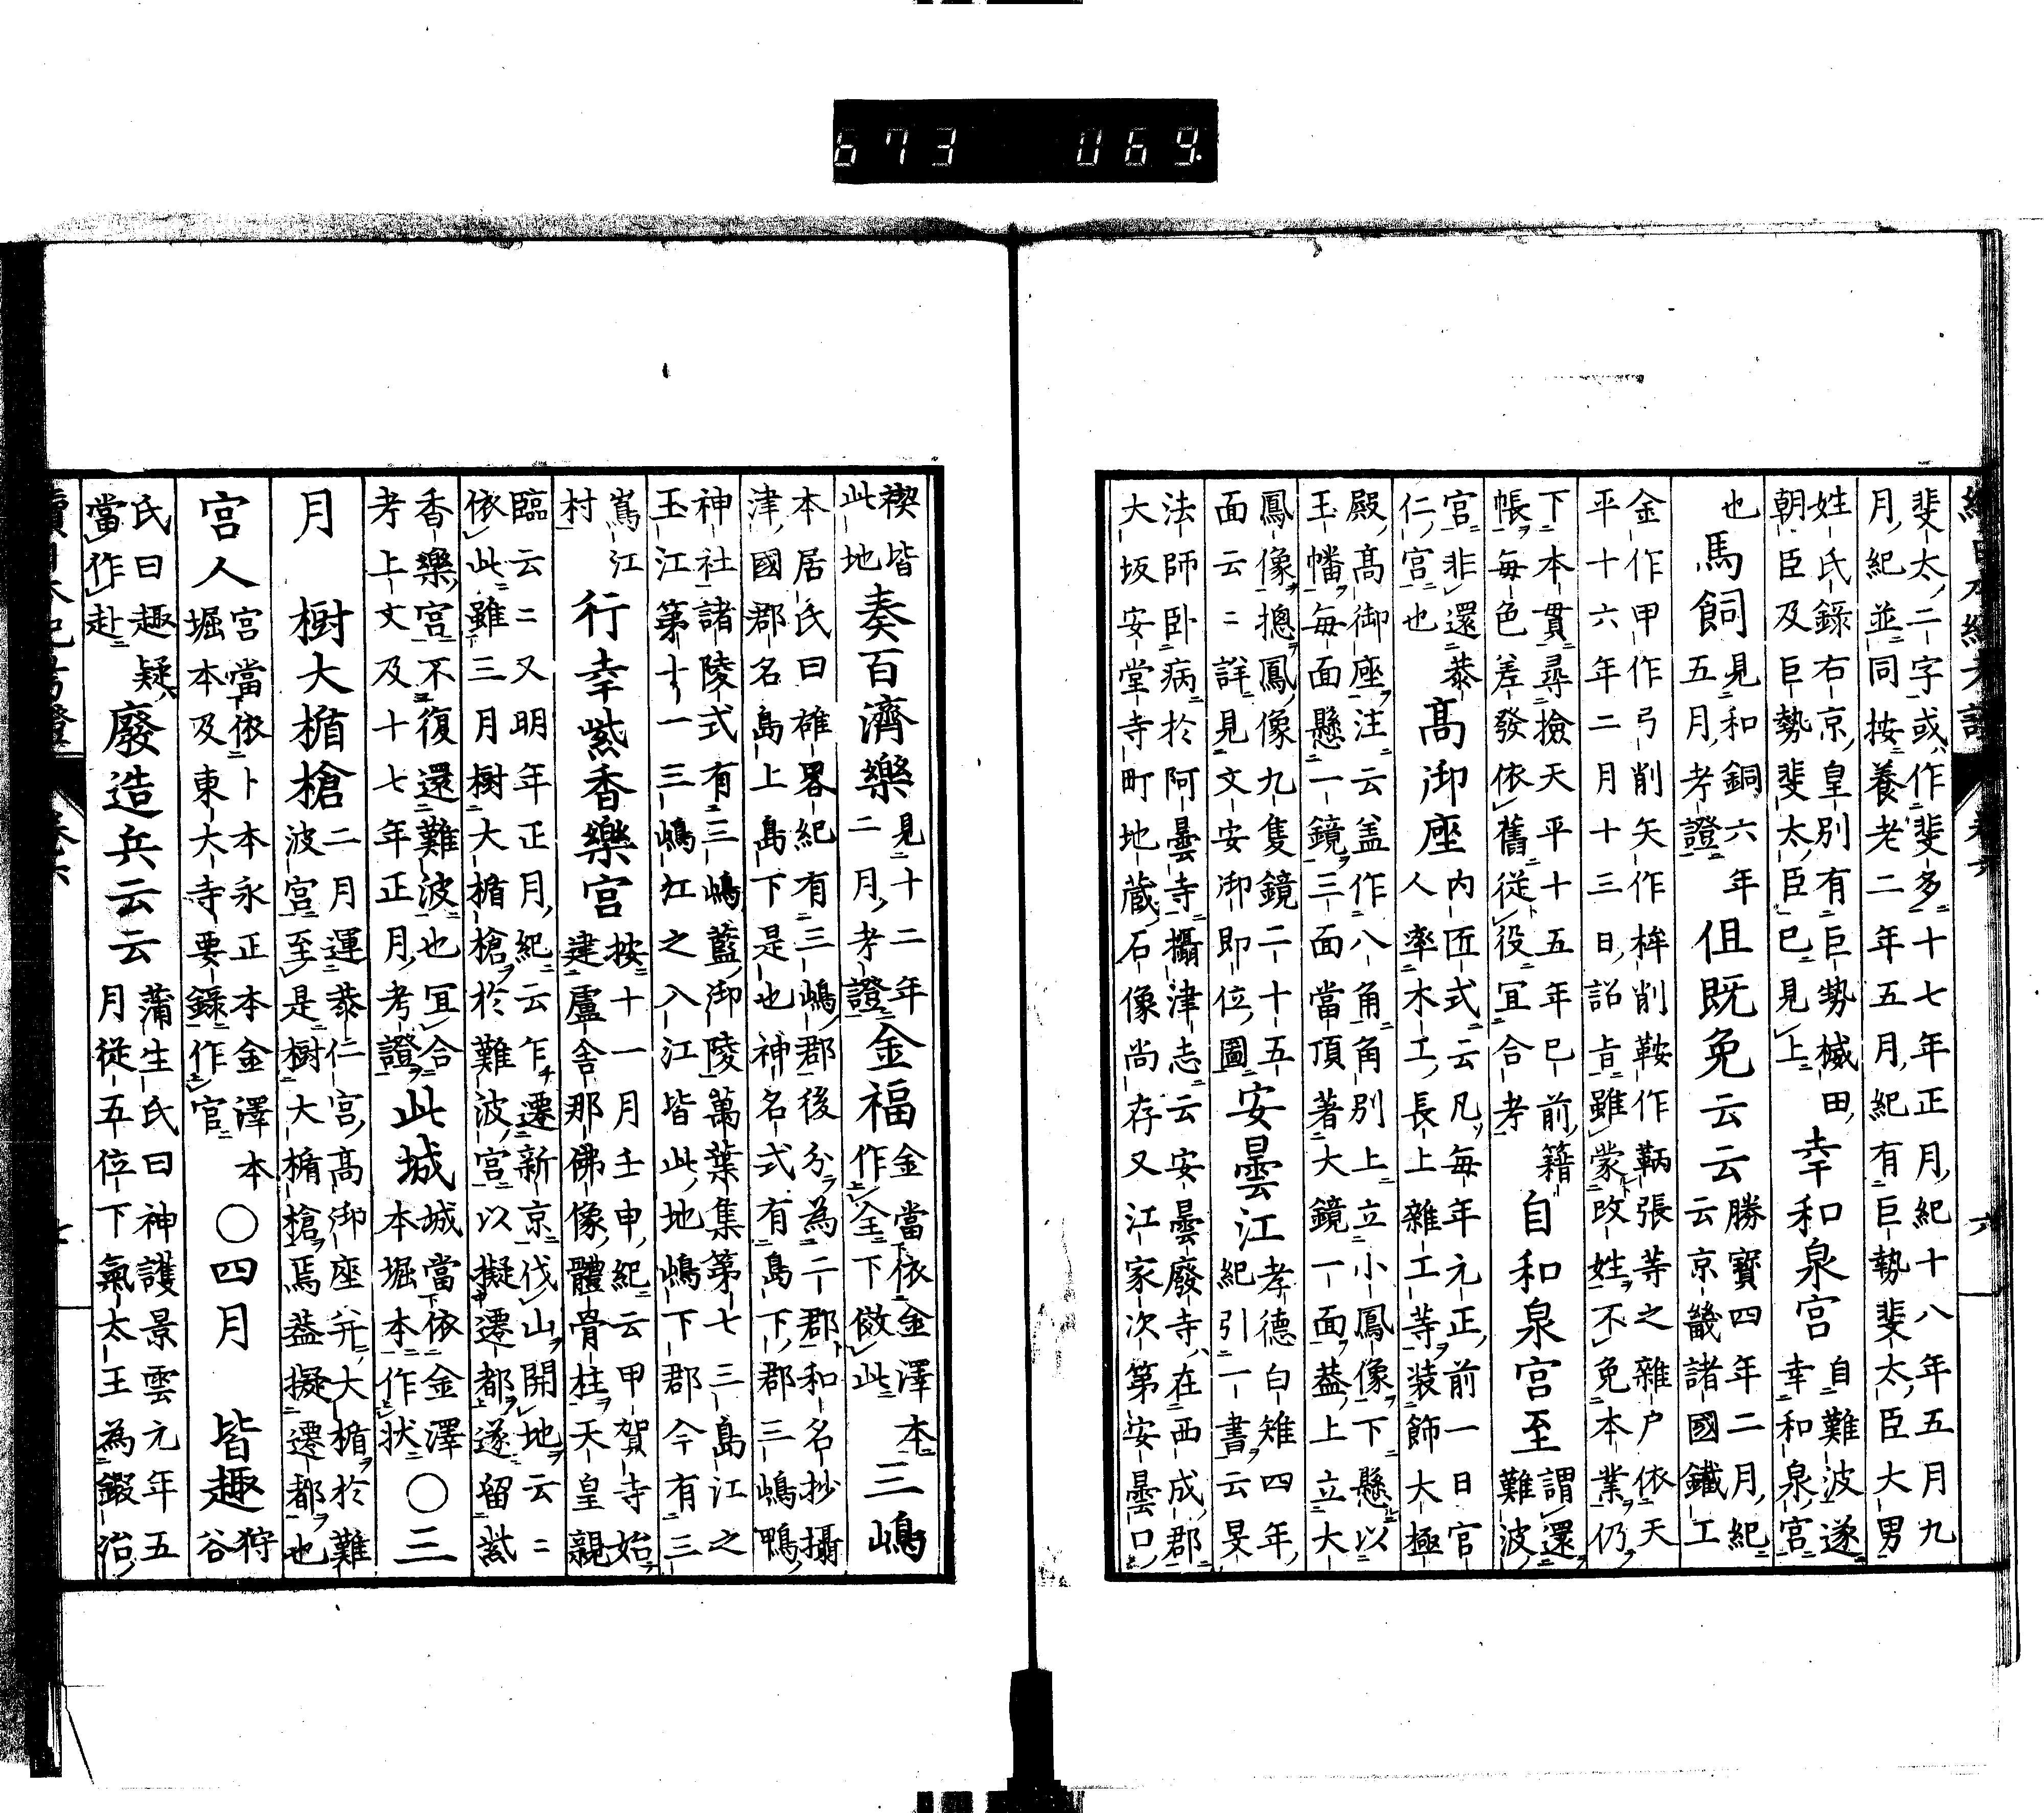 673 069
斐太二字或作斐多十七年正月紀十八年五月九
月紀並同按養老二年五月紀有巨勢斐太臣大男
姓氏錄右京皇別有巨勢槭田
朝臣及巨勢斐太臣已見上
幸和泉宮
自難波遂
幸和泉宮
也
馬飼
見和銅六年
五月考證
伹既免云云
勝寶四年二月紀
云京畿諸國鐵工
金作甲作弓削矢作桙削鞍作鞆張等之雜户依天
平十六年二月十三日詔旨雖蒙改姓不免本業仍
下本貫尋撿天平十五年已前籍
帳每色差發依舊從役冝合考
自和泉宮至
謂還
難波
宮非還恭
仁宮也
髙御座
内匠式云凡每年元正前一日官
人率木工長上雜工等装飾大極
殿髙御座注云盖作八角角別上立小鳳像下懸以
玉幡每面懸一鏡三面當頂著大鏡一面葢上立大
鳳像摠鳳像九隻鏡二十五
面云二詳見文安御即位圖
安曇江
孝德白雉四年
紀引一書云旻
法師卧病於阿曇寺攝津志云安曇廢寺在西成郡
大坂安堂寺町地蔵石像尚存又江家次第安曇口
禊皆
此地
奏百濟樂
見十二年
二月考證
金福
金當依金澤本
作全下倣此
三嶋
本居氏曰雄畧紀有三嶋郡後分為二郡和名抄攝
津國郡名島上島下是也神名式有島下郡三嶋鴨
神社諸陵式有三嶋藍御陵萬葉集第七三島江之
玉江第十一三嶋江之入江皆此地嶋下郡今有三
嶌江
村
行幸紫香樂宮
按十一月壬申紀云甲賀寺始
建盧舎那佛像體骨柱天皇親
臨云二又明年正月紀云乍遷新京伐山開地云二
依此雖三月樹大楯槍於難波宮以擬遷都遂留紫
香樂宮不復還難波也冝合
考上文及十七年正月考證
此城
城當依金澤
本堀本作状
〇三
月
樹大楯槍
二月運恭仁宮髙御座并大楯於難
波宮至是樹大楯槍焉葢擬遷都也
宮人
宮當依卜本永正本金澤本
堀本及東大寺要錄作官
〇四月
皆趣
狩
谷
氏曰趣疑
當作赴
廢造兵云云
蒲生氏曰神護景雲元年五
月從五位下氣太王為鍜冶